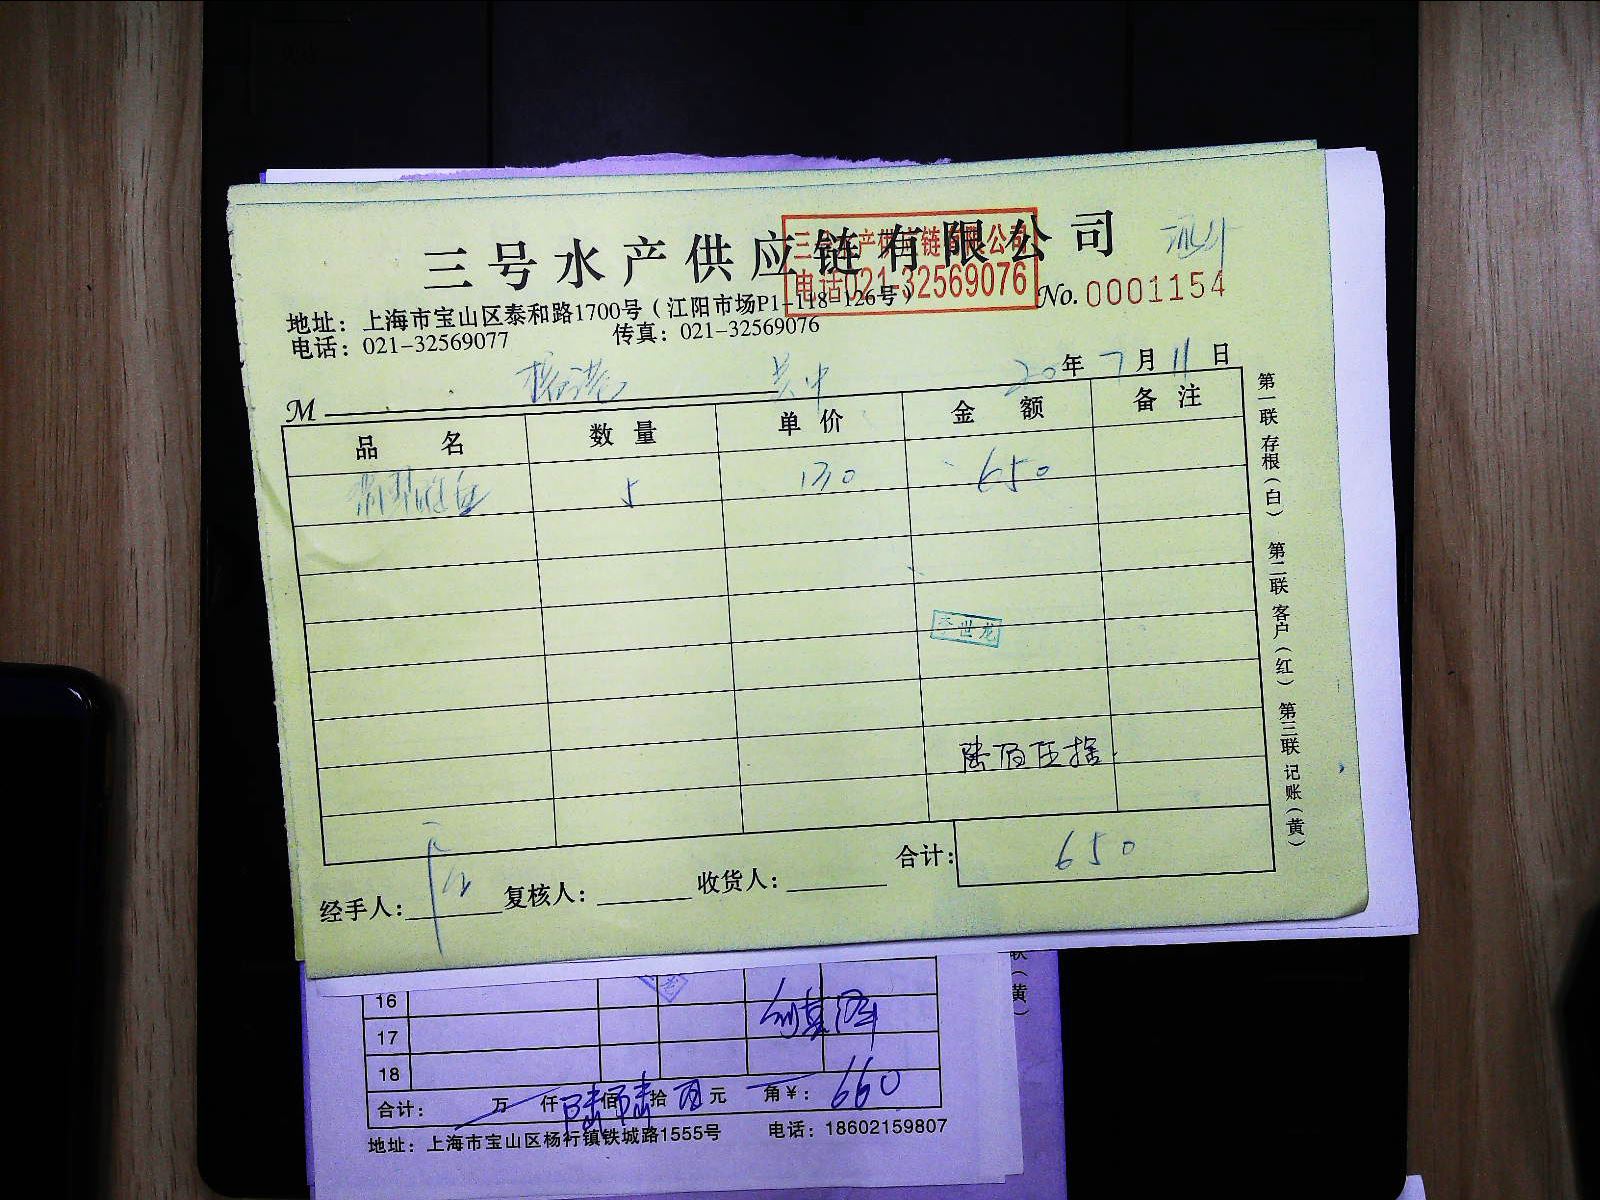 三号水产供应链有限公司
三号水产供应链有限公司
电话021-32569076
No. 0001154
地址：上海市宝山区泰和路1700号（江阳市场P1-118-126号）
电话：021-32569077 传真：021-32569076
M
20年 7月 11日
品 名 数 量 单 价 金 额 备 注
5 130 650
李世龙
陆佰伍拾
合计： 650
经手人： 复核人： 收货人：
第一联 存根（白） 第二联 客户（红） 第三联 记账（黄）
16
17
18
合计： 万 仟 陆 佰 陆 拾 元 角 ¥：660
地址：上海市宝山区杨行镇铁城路1555号 电话：18602159807
联（黄）